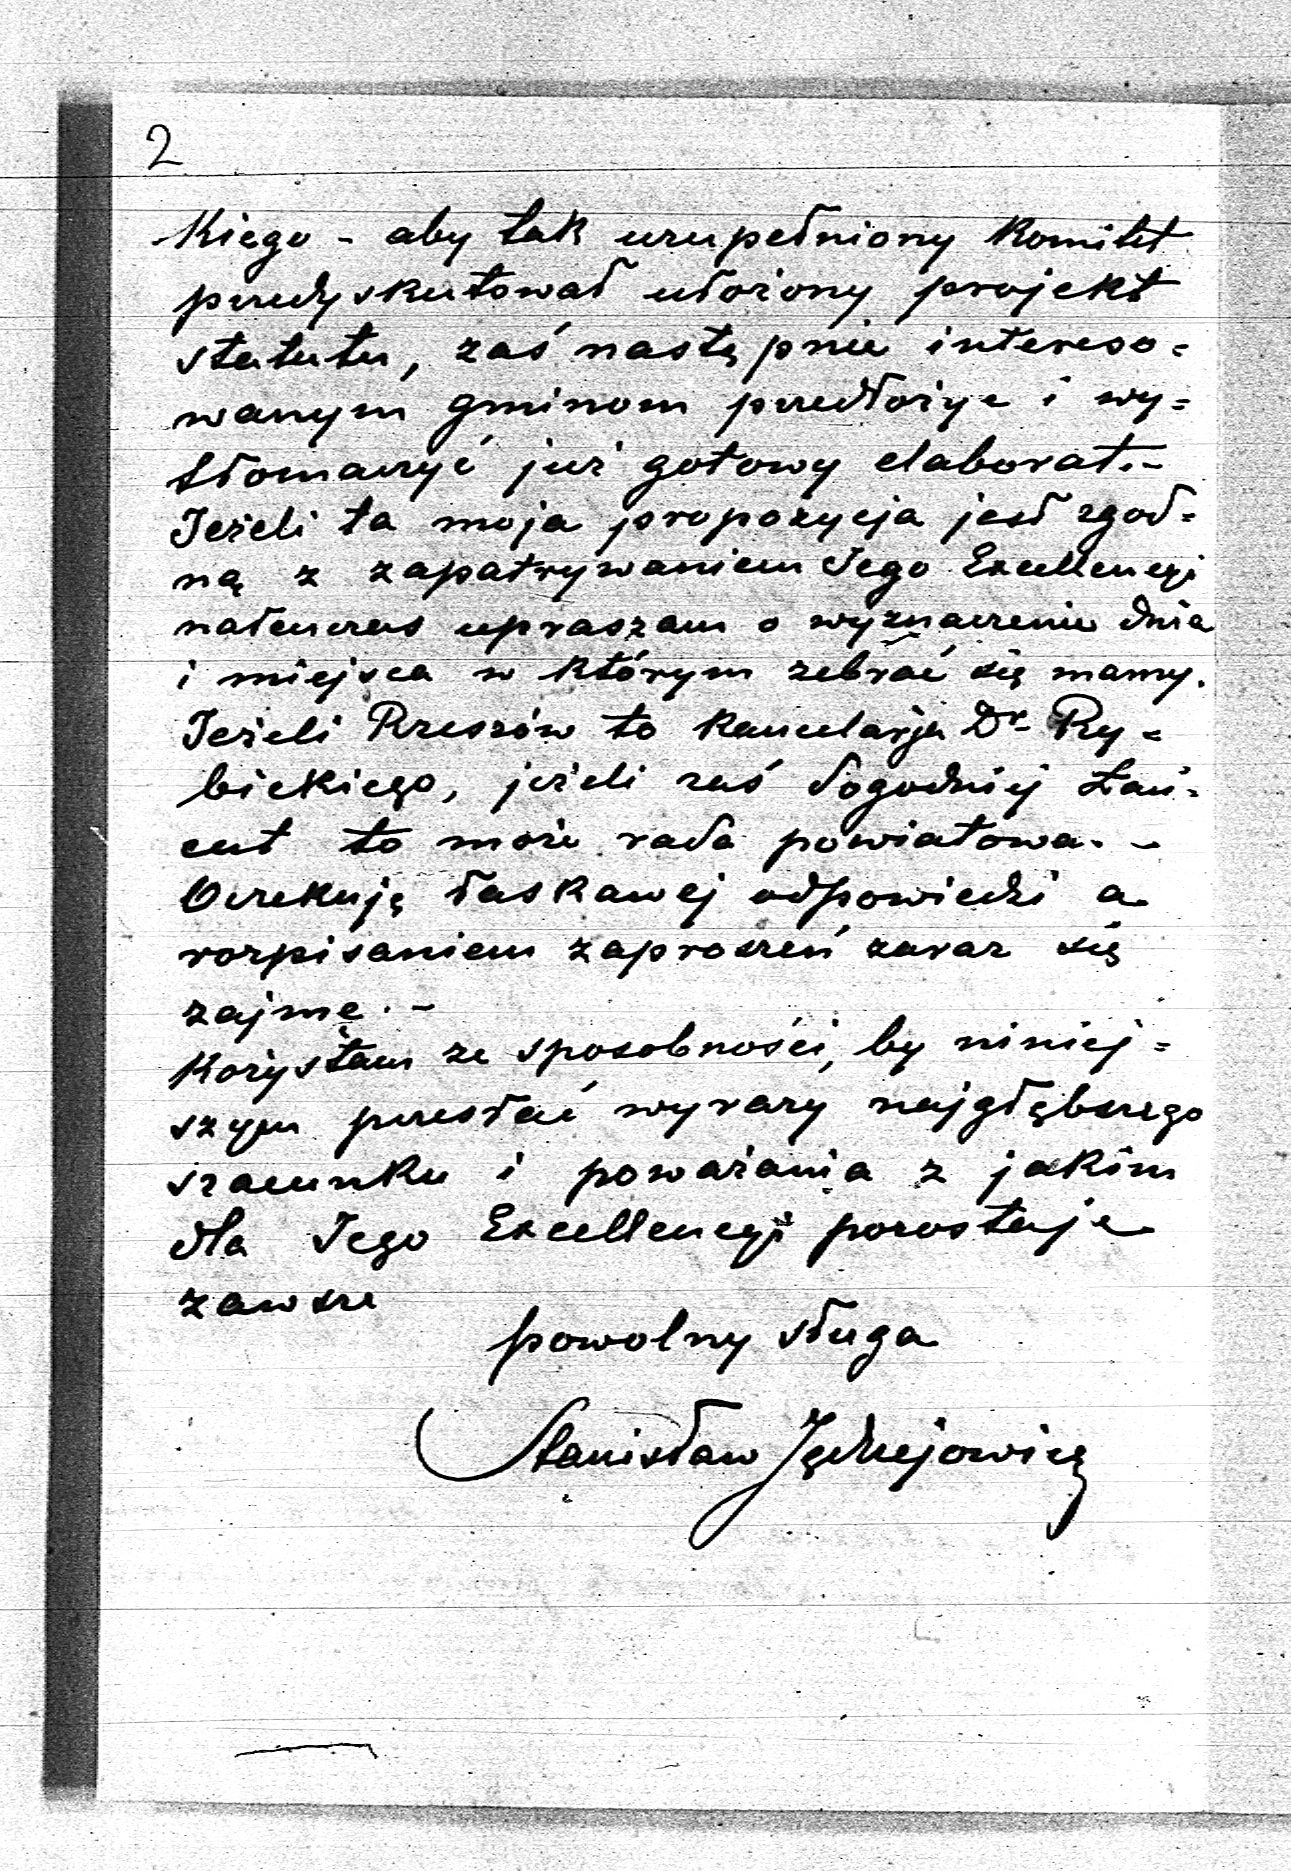 2
kiego - aby tak uzupełniony komitet
przedyskutował ułożony projekt
statutu, zaś następnie intereso=
wanym gminom przedłożyć i wy=
tłomaczyć już gotowy elaborat.-
Jeżeli ta moja propozycja jest zgod=
ną z zapatrywaniem Jego Excellencyi
natenczas upraszam o wyznaczenie dnia
i miejsca w którym zebrać się mamy.
Jeżeli Rzeszów to kancelarja Dr Ry=
bickiego, jeżeli zaś dogodniej Łań=
cut to może rada powiatowa. -
Oczekuję łaskawej odpowiedzi a
rozpisaniem zaproszeń zaraz się
zajmę. -
Kożystam ze sposobności, by niniej=
szym przesłać wyrazy najgłębszego
szacunku i poważania z jakim
dla Jego Excellencyi pozostaje
zawsze
powolny sługa
Stanisław Jędrzejowicz